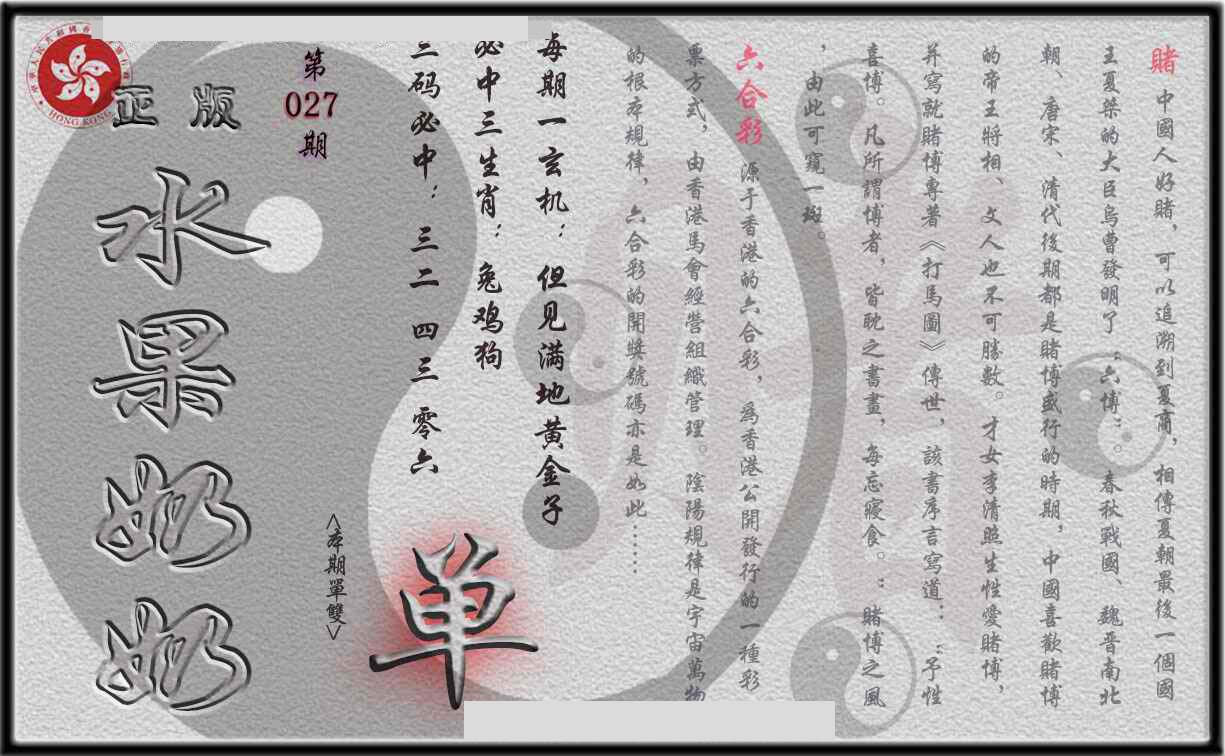 賭 中國人好賭，可以追溯到夏商，相傳夏朝最後一個國
王夏桀的大臣烏曹發明了“六博”。春秋戰國、魏晉南北
朝、唐宋、清代後期都是賭博盛行的時期，中國喜歡賭博
的帝王將相、文人也不可勝數。才女李清照生性愛賭博，
并寫就賭博專著《打馬圖》傳世，該書序言寫道：“予性
喜博。凡所謂博者，皆耽之晝，每忘寢食。”賭博之風
，由此可窺一斑。
六合彩 源于香港的六合彩，為香港公開發行的一種彩
票方式，由香港馬會經營組織管理。陰陽規律是宇宙萬物
的根本規律，六合彩的開獎號碼亦是如此……
每期一玄机：但见满地黄金子
必中三生肖：兔鸡狗
三码必中：三二 四三 零六
第
027
期
正版
水果奶奶
<本期單雙>
单
HONG KONG